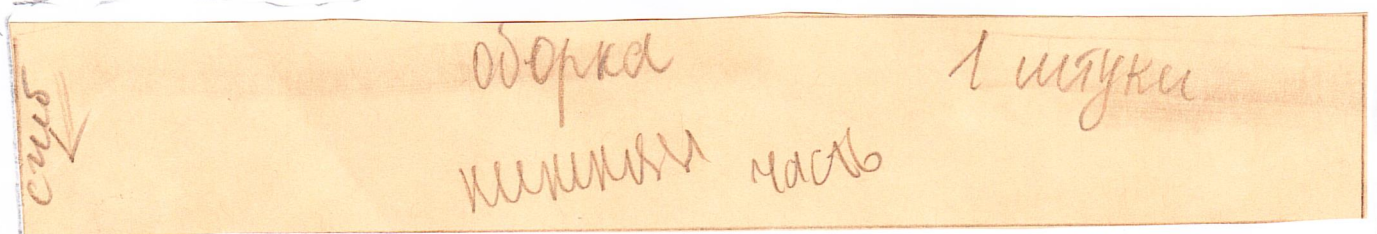 сгиб
оборка 1 штуки
нижняя часть